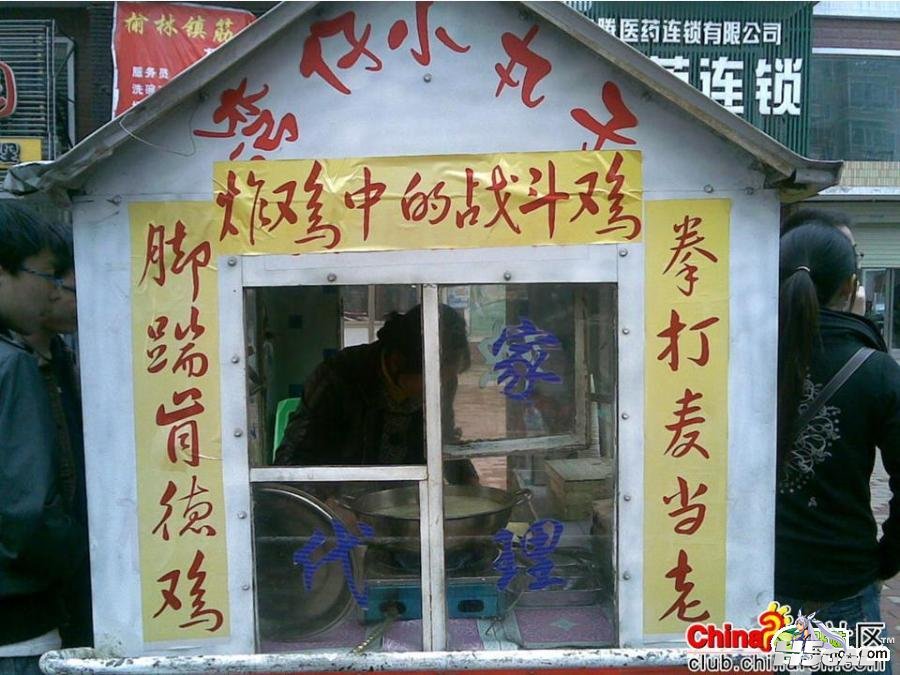 榆林镇筋
服务员
医药连锁有限公司
药连锁
小丸
炸鸡中的战斗鸡
拳打麦当老
脚踹肯德鸡
家
代理
China 社区